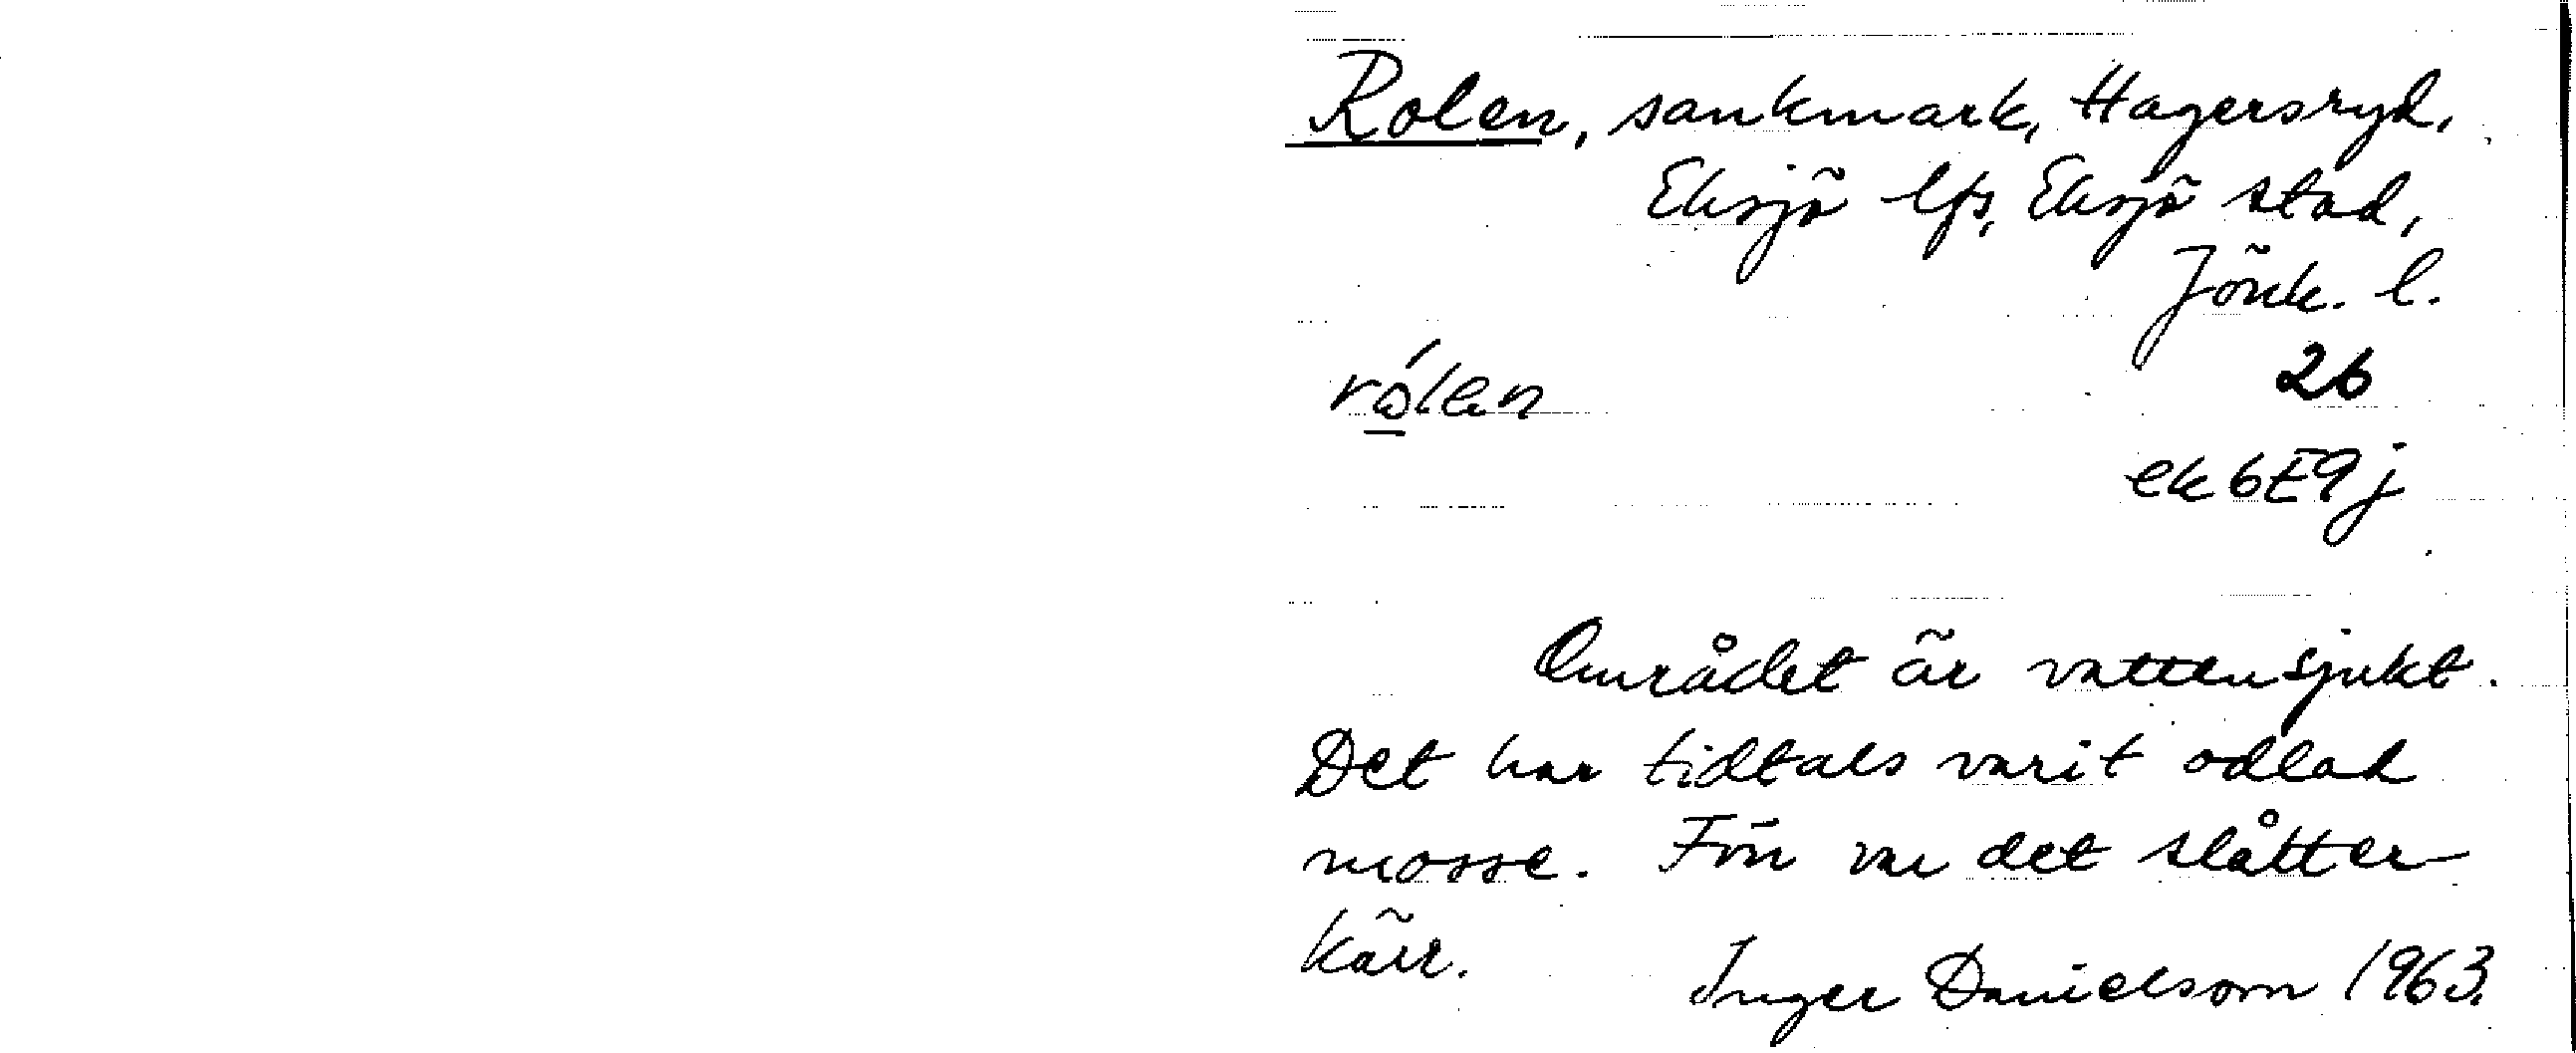 Rolen, sankmark, Hagersryd,
Eksjö lfs, Eksjö stad,
Jönk. l.
rólen
26
ek 6E9j
Området är vattensjukt.
Det har tidtals varit odlad
mosse. Förr var det slåtter-
kärr.
Inger Danielsson 1963.